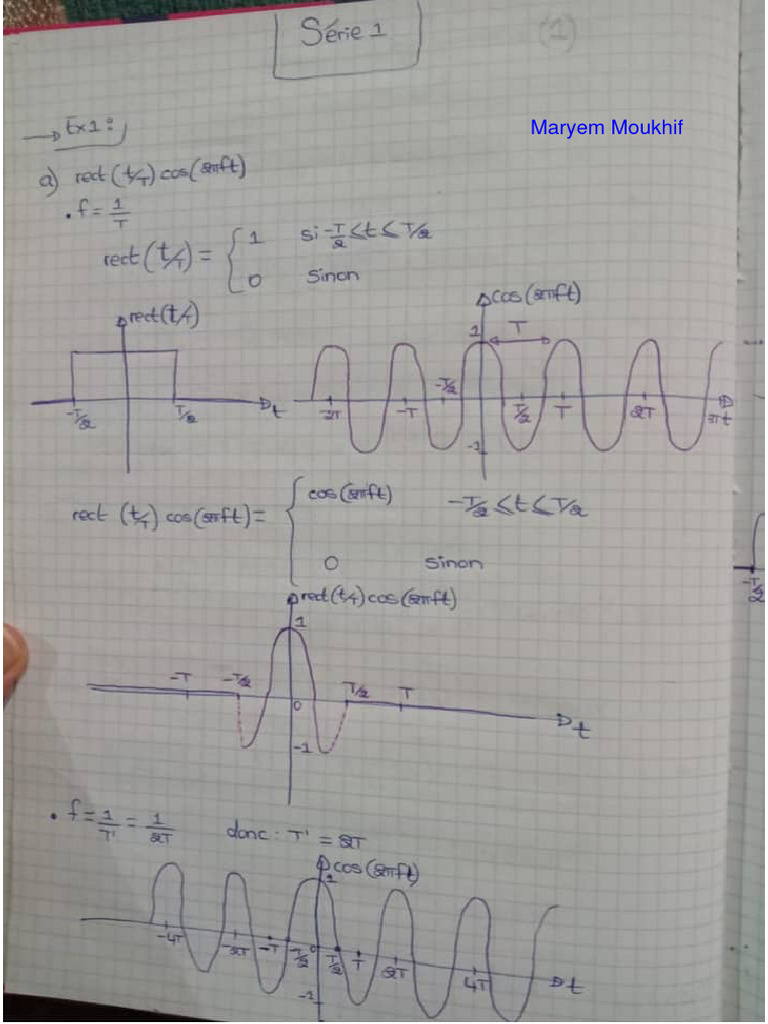 Série 1
(1)
→ Ex1:
Maryem Moukhif
a) rect(t/T) cos(2πft)
. f = 1/T
rect(t/T) = { 1 si -T/2 ≤ t ≤ T/2
0 sinon
rect(t/T)
-T/2 T/2 t
cos(2πft)
1 T
-2T -T -T/2 T/2 T 2T 3T t
-1
rect (t/T) cos(2πft) = { cos(2πft) -T/2 ≤ t ≤ T/2
0 sinon
rect(t/T) cos(2πft)
1
-T -T/2 0 T/2 T t
-1
. f = 1/T' = 1/2T donc: T' = 2T
cos(2πft)
1
-4T -2T -T -T/2 0 T/2 T 2T 4T t
-1
-T/2